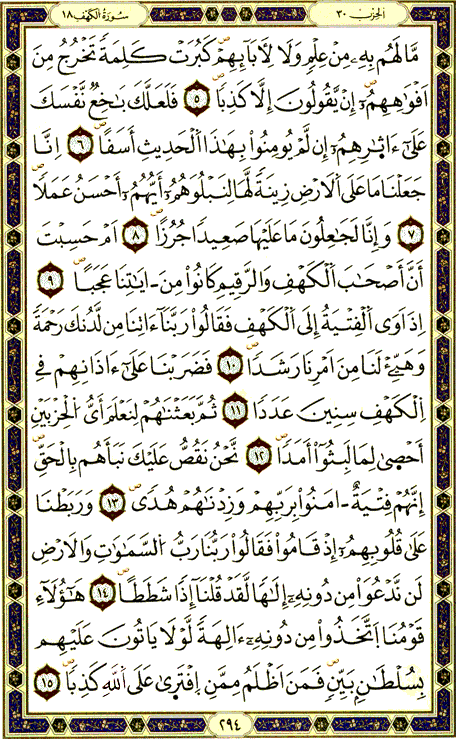 الحزب ٣٠
سورة الكهف ١٨
مَّا لَهُم بِهِۦ مِنْ عِلْمٍ وَلَا لِأٓبَآئِهِمْ كَبُرَتْ كَلِمَةً تَخْرُجُ مِنَ
اَفْوَٰهِهِمُۥٓ إِنْ يَّقُولُونَ إِلَّا كَذِبًا ٥ فَلَعَلَّكَ بَٰخِعٌ نَّفْسَكَ
عَلَىٰٓ ءَاثٰ۪رِهِمُۥٓ إِن لَّمْ يُومِنُوا۟ بِهَٰذَا اَ۬لْحَدِيثِ أَسَفًا ٦ اِنَّا
جَعَلْنَا مَا عَلَى اَ۬لَارْضِ زِينَةً لَّهَا لِنَبْلُوَهُمُۥٓ أَيُّهُمُۥٓ أَحْسَنُ عَمَلًا
٧ وَإِنَّا لَجَٰعِلُونَ مَا عَلَيْهَا صَعِيدًا جُرُزًا ٨ اَمْ حَسِبْتَ
أَنَّ أَصْحَٰبَ اَ۬لْكَهْفِ وَالرَّقِيمِ كَانُوا۟ مِنَ ـ ايَٰتِنَا عَجَبًا ٩
اِذَ اَوَى اَ۬لْفِتْيَةُ إِلَى اَ۬لْكَهْفِ فَقَالُوا۟ رَبَّنَآ ءَاتِنَا مِن لَّدُنكَ رَحْمَةً
وَهَيِّئْ لَنَا مِنَ اَمْرِنَا رَشَدًا ١٠ فَضَرَبْنَا عَلَىٰٓ ءَاذَانِهِمْ فِے
اِ۬لْكَهْفِ سِنِينَ عَدَدًا ١١ ثُمَّ بَعَثْنَٰهُمْ لِنَعْلَمَ أَيُّ اُ۬لْحِزْبَيْنِ
أَحْصَىٰ لِمَا لَبِثُوٓا۟ أَمَدًا ١٢ نَّحْنُ نَقُصُّ عَلَيْكَ نَبَأَهُم بِالْحَقِّ
إِنَّهُمْ فِتْيَةٌ ـ امَنُوا۟ بِرَبِّهِمْ وَزِدْنَٰهُمْ هُدًى ١٣ وَرَبَطْنَا
عَلَىٰ قُلُوبِهِمُۥٓ إِذْ قَامُوا۟ فَقَالُوا۟ رَبُّنَا رَبُّ اُ۬لسَّمَٰوَٰتِ وَالَارْضِ
لَن نَّدْعُوَا۟ مِن دُونِهِۦٓ إِلَٰهًا لَّقَد قُّلْنَآ إِذًا شَطَطًا ١٤ هَٰٓؤُلَآءِ
قَوْمُنَا اَ۪تَّخَذُوا۟ مِن دُونِهِۦٓ ءَالِهَةً لَّوْلَا يَاتُونَ عَلَيْهِم
بِسُلْطَٰنٍۢ بَيِّنٍ فَمَنَ اَظْلَمُ مِمَّنِ اِ۪فْتَر۪ىٰ عَلَى اَ۬للَّهِ كَذِبًا ١٥
٢٩٤